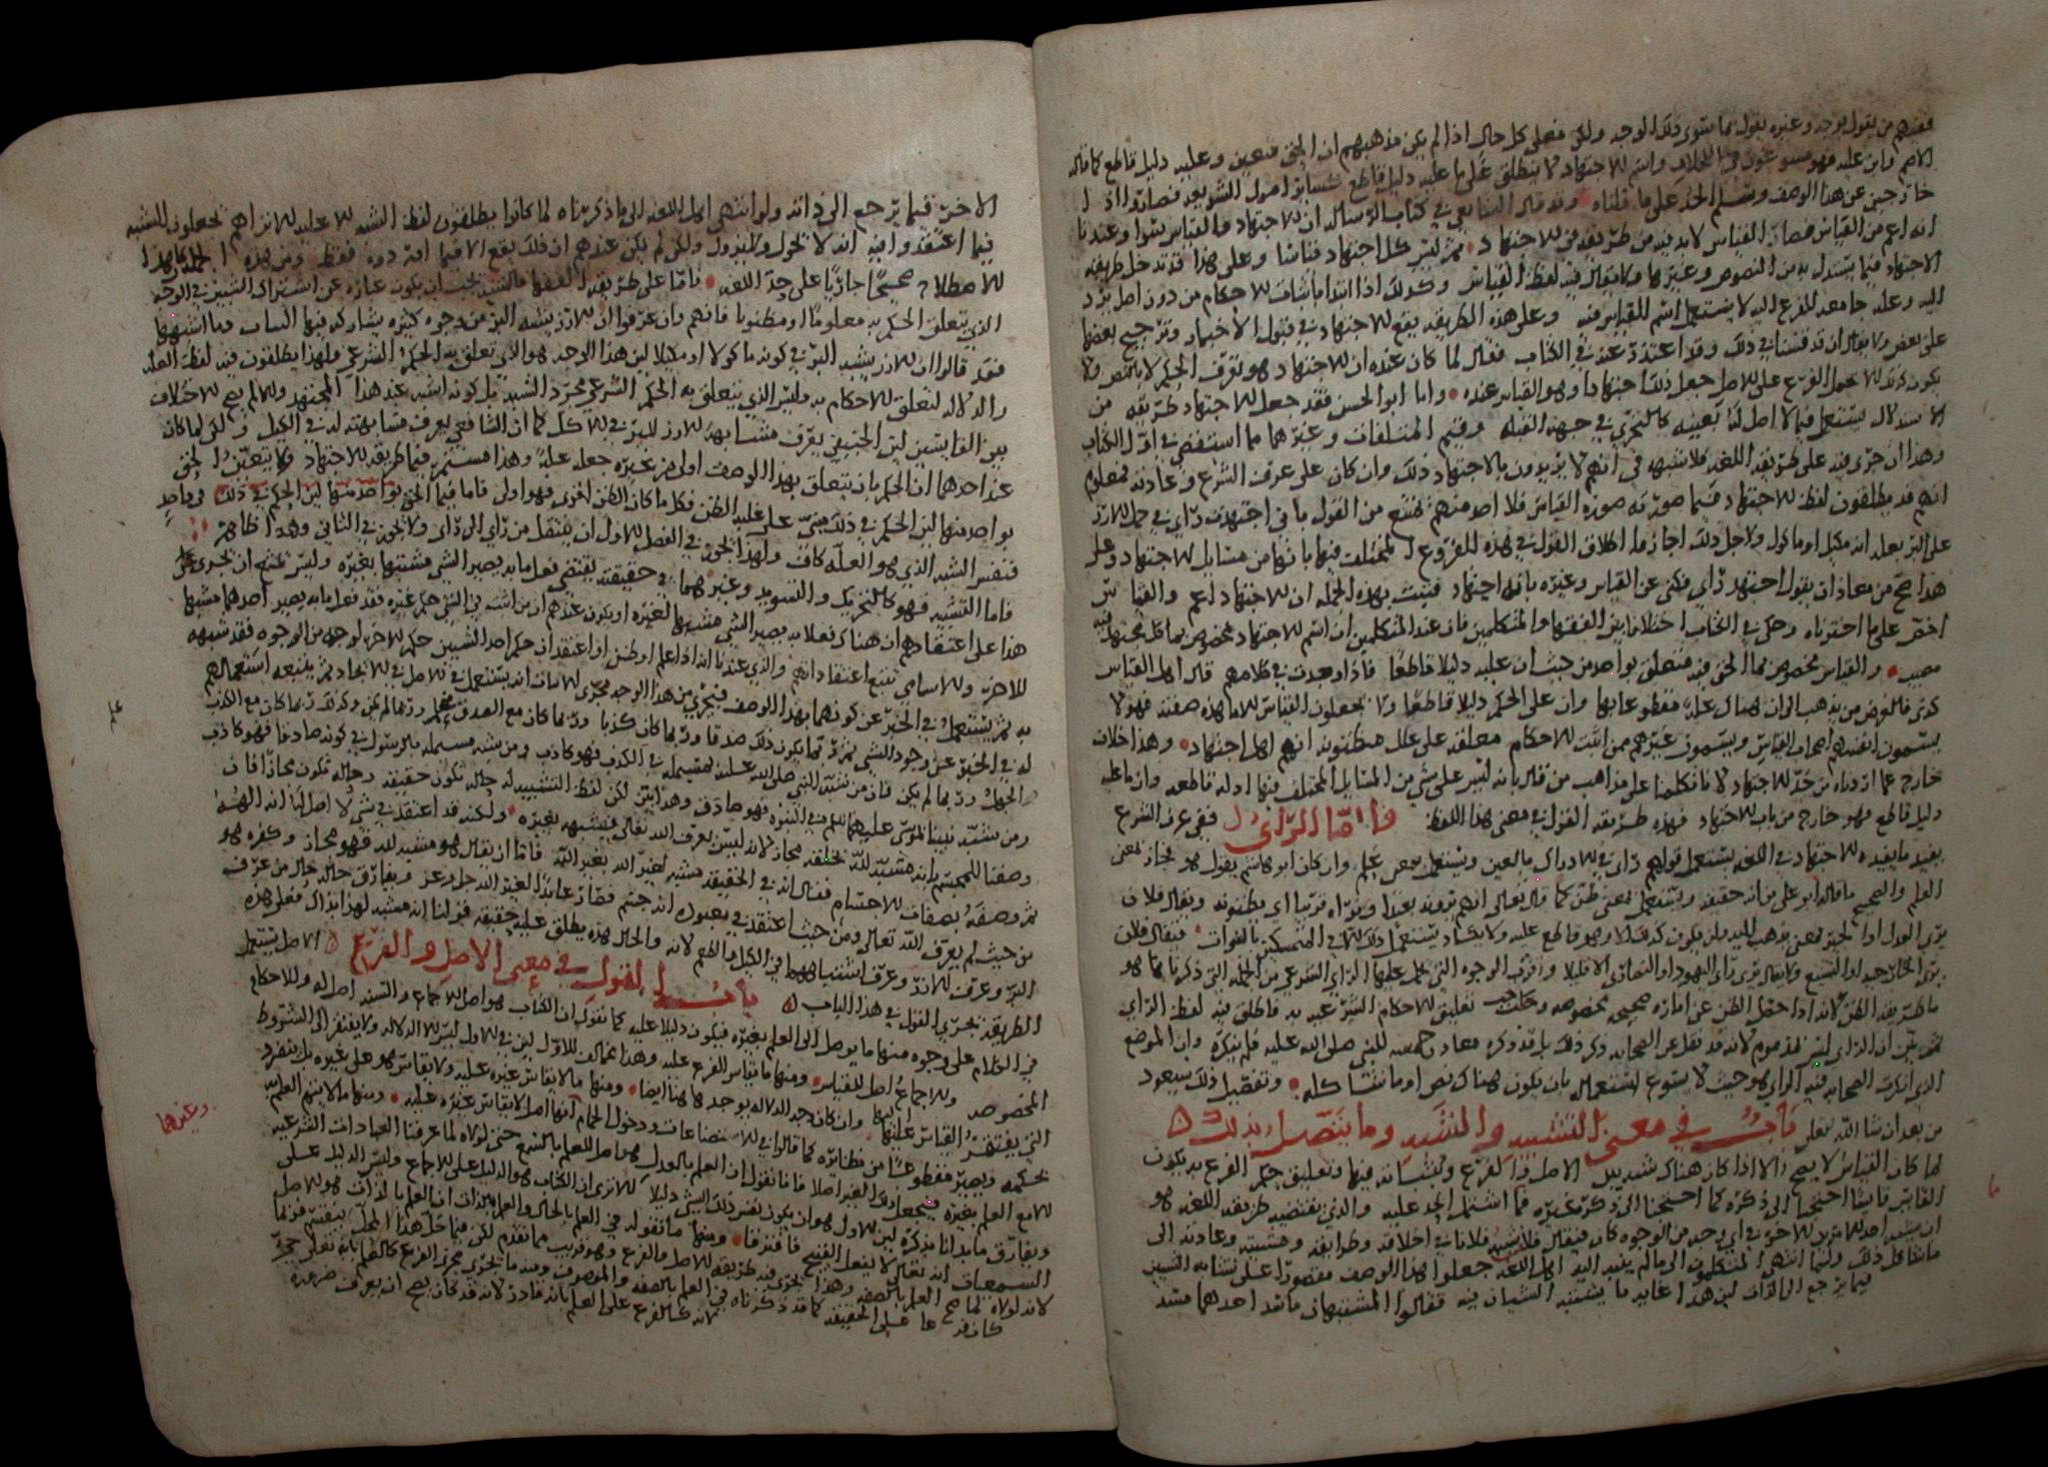 فمنهم من يقول بوجه وغيره يقول بما سوى ذلك الوجه ولكن فعلى كل حال اذا لم يكن مذهبهم ان الحق متعين وعليه دليل قاطع كما قاله
الاصم وابن عليه فهو مسوغون في الخلاف واسم الاجتهاد فلا ينطلق على ما عليه دليل قاطع كسائر اصول الشريعه فصاروا اذا
خارجين عن هذا الوصف وسلم الحد على ما قلناه وقد قال الشافعي في كتاب الرساله ان الاجتهاد والقياس سوا وعندنا
انه اعم من القياس فصار القياس لابد فيه من طريقه من الاجتهاد ثم ليس كل اجتهاد قياسا وعلى هذا قد تدخل طريقه
الاجتهاد فيما يستدل به من النصوص وغيرها ولا يقال فيه لفظ القياس وكذلك اذا ابتدا باثبات الاحكام من دون اصل يرد
اليه وعله جامعه للفرع اليه لا يستعمل اسم القياس فيه وعلى هذه الطريقه يقع الاجتهاد في قبول الاخبار وترجيح بعضها
على بعض ولا يقال ان قد قسنا في ذلك وقد اعتذر عنه في الكتاب فقال لما كان عنده ان الاجتهاد هو تعرف الحكم لا بالنص ولا
يكون كذلك الا بحمل الفرع على الاصل جعل ذلك اجتهادا وهو القياس عنده واما ابو الحسن فقد جعل الاجتهاد طريقه من
الاستدلال يستعمل فيما لا اصل له بعينه كالتحري في جهه القبله وقيم المتلفات وغيرهما مما استقصي في اول الكتاب
وهذا ان جرى فيه على طريقه اللغه فلا شبهه في انهم لا يريدون بالاجتهاد ذلك وان كان على عرف الشرع وعادته فمعلوم
انهم قد يطلقون لفظ الاجتهاد فيما صورته صوره القياس فلا احد منهم يمتنع من القول باني اجتهدت رايي في حمل الارز
على البر بعله انه مكيل او ماكول ولاجل ذلك اجازوا اطلاق القول في هذه الفروع المختلف فيها بانها من مسائل الاجتهاد وعلى
هذا صح من معاذ ان يقول اجتهد رايي فكنى عن القياس وغيره بانه اجتهاد فثبت بهذه الجمله ان الاجتهاد اعم والقياس
اخص على ما اخترناه وحكى في الكتاب اختلافا بين الفقها والمتكلمين فان عند المتكلمين ان اسم الاجتهاد مخصوص بما كل مجتهد فيه
مصيب والقياس مخصوص بما الحق فيه متعلق بواحد من حيث ان عليه دليلا قاطعا فاذا وجدت في كلامهم قال اهل القياس
كذى فالغرض من يذهب الى ان هناك عله مقطوعا بها وان على الحكم دليلا قاطعا ولا يجعلون القياس الا ما هذه صفته فهولا
يسمون انفسهم اصحاب القياس ويسمون غيرهم ممن اثبت الاحكام معلقه على علل مظنونه انهم اهل اجتهاد وهذا خلاف
خارج عما اردناه من حد الاجتهاد لانا تكلمنا على مذاهب من قال بانه ليس على شي من المسايل المختلف فيها ادله قاطعه وان ما عليه
دليل قاطع فهو خارج من باب الاجتهاد فهذه طريقه القول في معنى هذا اللفظ فاما الراي ففي عرف الشرع
يفيد ما يفيده الاجتهاد وفي اللغه يستعمل قولهم راى في الادراك بالعين ويستعمل بمعنى علم وان كان ابو هاشم يقول هو مجاز بمعنى
العلم والصحيح ما قاله ابو علي من انه حقيقه ويستعمل بمعنى ظن كما قال تعالى انهم يرونه بعيدا ونراه قريبا اي يظنونه ويقال فلان
يرى العدل او الجبر بمعنى يذهب اليه ولن يكون كذلك الا وهو قاطع عليه ولا يكاد يستعمل ذلك الا في المتمسك بالصواب فيقال فلان
يرى التوحيد او التشيع ولا يقال يرى راي اليهود او النصارى الا قليلا واقرب الوجوه التي يحمل عليها الراي الشرعي من الجمله التي ذكرناها هو
ما طريقه الظن لانه اذا حصل الظن عن اماره صحيحه مخصوصه وجب تعليق الاحكام الشرعيه به فاطلق فيه لفظه الراي
ثم بين ان الراي ليس بمذموم لانه قد نقل عن الصحابه ذكر ذلك بل قد ذكره معاذ بحضره النبي صلى الله عليه فلم ينكره وان الموضع
الذي انكرت الصحابه فيه الراي هو حيث لا يسوغ استعماله بان يكون هناك نص او ما شاكله وتفصيل ذلك سيعود
من بعد ان شا الله تعلى باب في معنى التشبيه والشبه وما يتصل بذلك
لما كان القياس لا يصح الا اذا كان هناك شبه بين الاصل والفرع ومشابه فيها وتعليق حكم الفرع به يكون
القايس قايسا احتجنا الى ذكره كما احتجنا الى ذكر غيره مما اشتمل الحد عليه والذي تقتضيه طريقه اللغه هو
ان يشبه احد الامرين الاخر في اي وجه من الوجوه كان فيقال فلان يشبه فلانا في اخلاقه وطرايقه ومشيته وعادته الى
ما شاكل ذلك ولما انتهى المتكلمون الى ما لم يهتد اليه اهل اللغه جعلوا هذا الوصف مقصورا على تشابه الشيين
فيما يرجع الى الذات لان هذا غايه ما يشتبه الشيان فيه فقالوا المشتبهان ما سد احدهما مسد
الاخر فيما يرجع الى ذاته ولو انتهى اهل اللغه الى ما ذكرناه لما كانوا يطلقون لفظ الشبه الا عليه الا تراهم يجعلون للشبه
فيما اعتقدوا فيه انه لا يحول ولا يزول ولكن لم يكن عندهم ان ذلك يقع الا فيما اوردوه فقط ومن هذه الجمله كان هذا
الاصطلاح صحيحا جاريا على حد اللغه فاما على طريقه الفقها فالشبه يجب ان يكون عباره عن اشتراك الشيين في الوجه
الذي تعلق الحكم به معلوما او مظنونا فانهم وان عرفوا ان الارز يشبه البر من وجوه كثيره يشاركه فيها النبات وما اشبهها
فقد قالوا ان الارز يشبه البر في كونه ماكولا او مكيلا لان هذا الوجه هو الذي تعلق به الحكم الشرعي ولهذا يطلقون فيه لفظ العله
والدلاله لتعلق الاحكام به وليس الذي يتعلق به الحكم الشرعي مجرد الشبه بل كونه اشبه عند هذا المجتهد والا لم يصح الاختلاف
بين القايسين لان الحنفي يعرف مشابهه الارز للبر في الاكل كما ان الشافعي يعرف مشابهته له في الكيل ولكن لما كان
عند احدهما ان الحكم بان يتعلق بهذا الوصف اولى من غيره جعله عله وهذا مستمر فيما طريقه الاجتهاد ولا يتعين الحق
بواحد منها لان الحكم في ذلك مبني على غلبه الظن فكل ما كان الظن اقوى فهو اولى فاما فيما الحق بواحد منها لان الحكم في ذلك في واحد
فنفس الشبه الذي هو العله كاف ولهذا يجوز في الفصل الاول ان ينتقل من راي الى راي ولا يجوز في الثاني وهذا ظاهر
فاما التشبيه فهو كالتحريك والتسويد وغيرهما في حقيقته يقتضي فعل ما به يصير الشي مشتبها بغيره وليس يمتنع ان يجرى على
هذا على اعتقادهم ان هناك فعلا به يصير الشي مشبها لغيره او يكون عندهم ان من اثبت في الشي حكم غيره فقد فعل ما به يصير احدهما مشبها
للاخر والاسامي تتبع اعتقاداتهم والذي عندنا انه اذا علم او ظن او اعتقد ان حكم احد الشيين حكم الاخر لوجه من الوجوه فقد شبهه
به ثم يستعمل في الخبر عن كونهما بهذا الوصف فيجري من هذا الوجه مجرى الاثبات انه يستعمل في الاصل في الايجاد ثم يتبعه استعمالهم
له في الخبر عن وجود الشي ثم ربما يكون ذلك صدقا وربما كان كذبا وربما كان مع الصدق علم وربما لم يكن وكذلك ربما كان مع الكذب
الجهل وربما لم يكن فان من شبه النبي صلى الله عليه بمسيلمه في الكذب فهو كاذب ومن شبه مسيلمه بالرسول في كونه صادقا فهو كاذب
ومن شبه نبينا بموسى عليهما السلم في النبوه فهو صادق وهذا بين لكن لفظ التشبيه له حاله تكون حقيقه وحاله تكون مجازا فان
وصفنا المجسم بانه مشبه لله بخلقه مجاز لانه ليس يعرف الله تعالى فيشبهه بغيره ولكنه قد اعتقد في شي لا اصل له انه الهه
ثم وصفه بصفات الاجسام فقال انه في الحقيقه مشبه لغير الله بغير الله فاما ان يقال هو مشبه لله فهو مجاز وكفره هو
من حيث لم يعرف الله تعالى ومن حيث اعتقد في معبوده انه جسم فصار عابدا لغير الله جل وعز ويفارق حاله حال من عرف
البر وعرف الارز وعرف اشتباههما في الكيل والطعم لانه والحال هذه يطلق عليه حقيقه قولنا انه مشبه لهذا بذاك فعلى هذه
الطريقه يجري القول في هذا الباب باب القول في معنى الاصل والفرع الاصل يستعمل
في الكلام على وجوه منها ما يوصل الى العلم بغيره فيكون دليلا عليه كما نقول ان الكتاب هو اصل للاجماع والسنه اصل له وللاحكام
المخصوصه وللاجماع اصل للقياس ومنها ما يقاس الفرع عليه وهذا يخالف الاول لان في الاول ليس الا الدلاله ولا يفتقر الى الشروط
التي يفتقر القياس اليها وان كان وجه الدلاله يوجد ها هنا ايضا ومنها ما لا يقاس غيره عليه ولا يقاس هو على غيره بل ينفرد
بحكمه ويصير مقطوعا من نظائره كما قالوا في الاستصناعات ودخول الحمام انها اصل لا يقاس غيره عليه ومنها ما لا يتم العلم
الا مع العلم بغيره فيجعل ذلك الغير اصلا فانا نقول ان العلم بالعدل هو اصل للعلم بالشرع حتى لولاه لما عرفنا العبادات الشرعيه
ويفارق ما بدانا بذكره لان الاول هو ان يكون نفس ذلك الشي دليلا الا ترى ان الكتاب هو الدليل على الاجماع وليس الدليل على
السمعيات انه تعالى لا يفعل القبيح فافترقا ومنها ما نقوله في العلم بالحال والعلم بالذات ان العلم بالذات هو الاصل
لانه لولاه لما صح العلم بالصفه وهذا يجري فيه طريقه الاصل والفرع وهو قريب مما تقدم لكن فيما حل هذا المحل ينقسم فربما
كان فرعا على الحقيقه كما قد ذكرناه في العلم بالصفه والموصوف ومنه ما يجري مجرى الفرع كالعلم بانه تعلى حي
لانه كالفرع على العلم بانه قادر لانه قد كان يصح ان يعرف ضروره
علم
وغيرهما